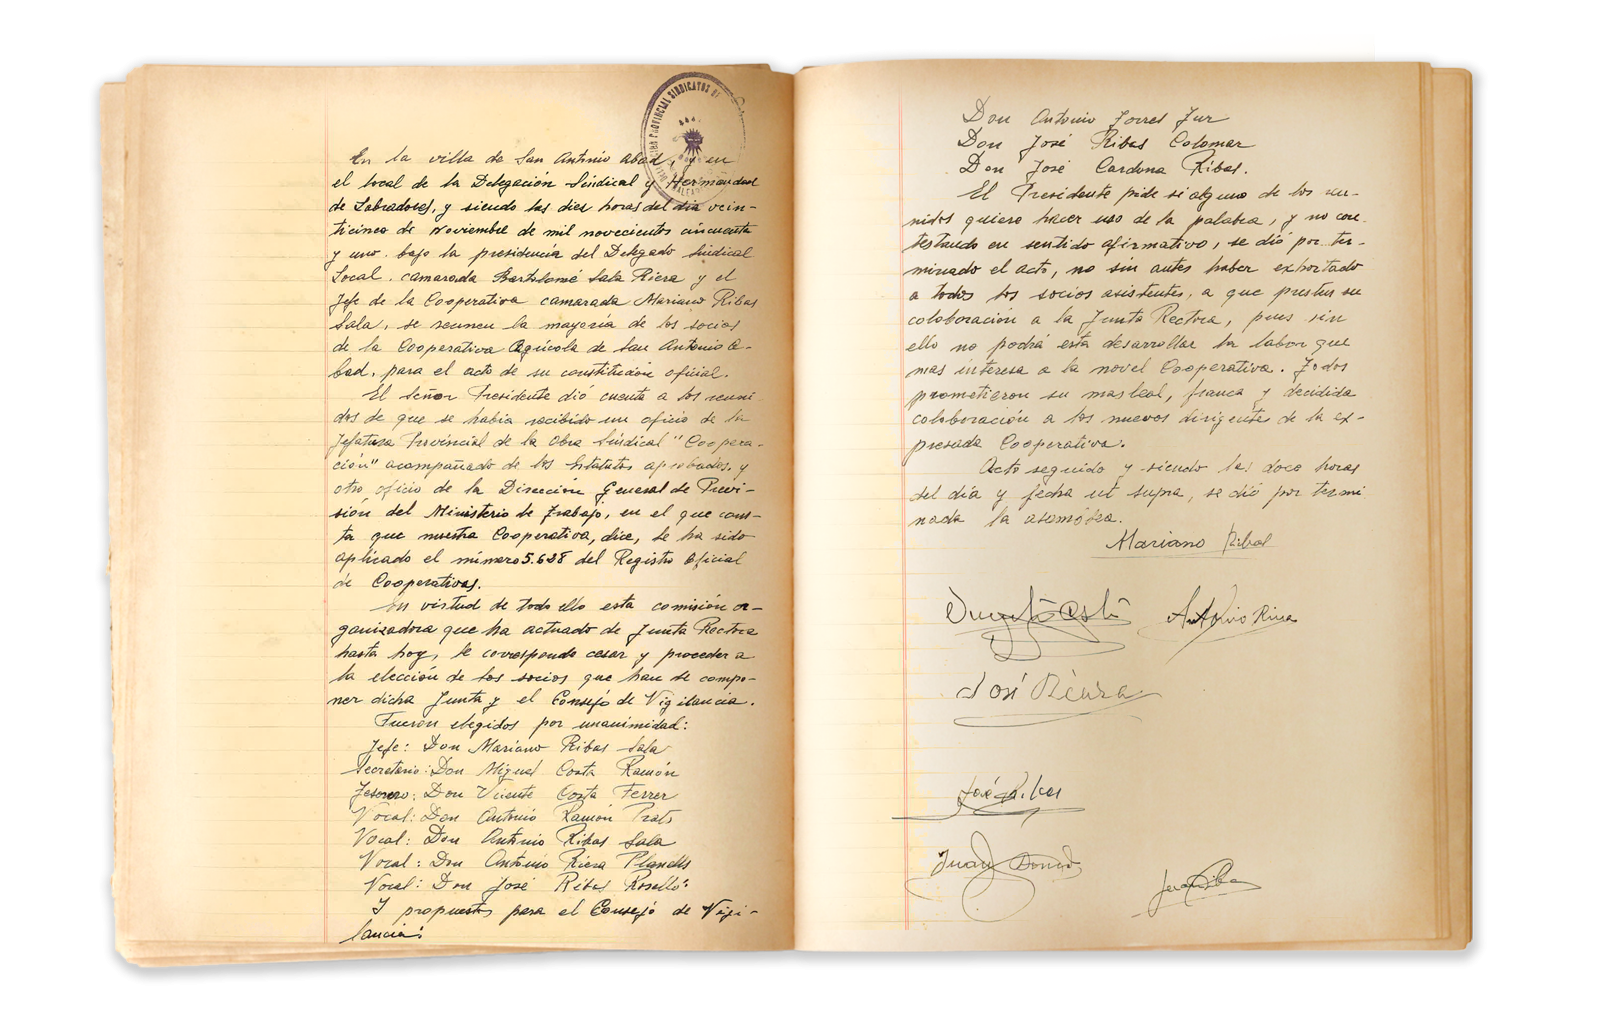 En la villa de San Antonio Abad, y en
el local de la Delegación Sindical y Hermandad
de Labradores, y siendo las dies horas del dia vein-
ticinco de Noviembre de mil novecientos cincuenta
y uno. bajo la presidencia del Delegado Sindical
Local. camarada Bartolomé Sala Riera y el
Jefe de la Cooperativa camarada Mariano Ribas
Sala, se reunen la mayoria de los socios
de la Cooperativa Agrícola de San Antonio A-
bad, para el acto de su constitución oficial.
El señor Presidente dió cuenta a los reuni-
dos de que se habia recibido un oficio de la
Jefatura Provincial de la Obra Sindical "Coopera-
ción" acompañado de los Estatutos aprobados, y
otro oficio de la Dirección General de Previ-
sión del Ministerio de Trabajo, en el que cons-
ta que nuestra Cooperativa, dice, se ha sido
aplicado el número 5.628 del Registro Oficial
de Cooperativas.
En virtud de todo ello esta comisión or-
ganizadora que ha actuado de Junta Rectora
hasta hoy, le corresponde cesar y proceder a
la elección de los socios que han de compo-
ner dicha Junta y el Consejo de Vigilancia.
Fueron elegidos por unanimidad:
Jefe: Don Mariano Ribas Sala
Secretario: Don Miguel Costa Ramón
Tesorero: Don Vicente Costa Ferrer
Vocal: Don Antonio Ramón Prats
Vocal: Don Antonio Ribas Sala
Vocal: Don Antonio Riera Planells
Vocal: Don José Ribas Roselló:
Y propuestos para el Consejo de Vigi-
lancia:
PROVINCIAL SINDICATOS DE
Don Antonio Torres Tur
Don José Ribas Colomar
Don José Cardona Ribas.
El Presidente pide si alguno de los reu-
nidos quiere hacer uso de la palabra, y no con-
testando en sentido afirmativo, se dió por ter-
minado el acto, no sin antes haber exhortado
a todos los socios asistentes, a que presten su
colaboración a la Junta Rectora, pues sin
ello no podrá esta desarrollar la labor que
mas interesa a la novel Cooperativa. Todos
prometieron su mas leal, franca y decidida
colaboración a los nuevos dirigentes de la ex-
presada Cooperativa.
Acto seguido y siendo las doce horas
del día y fecha ut supra, se dió por termi
nada la asamblea.
Mariano Ribas
Antonio Riera
José Riera
José Ribas
Juan